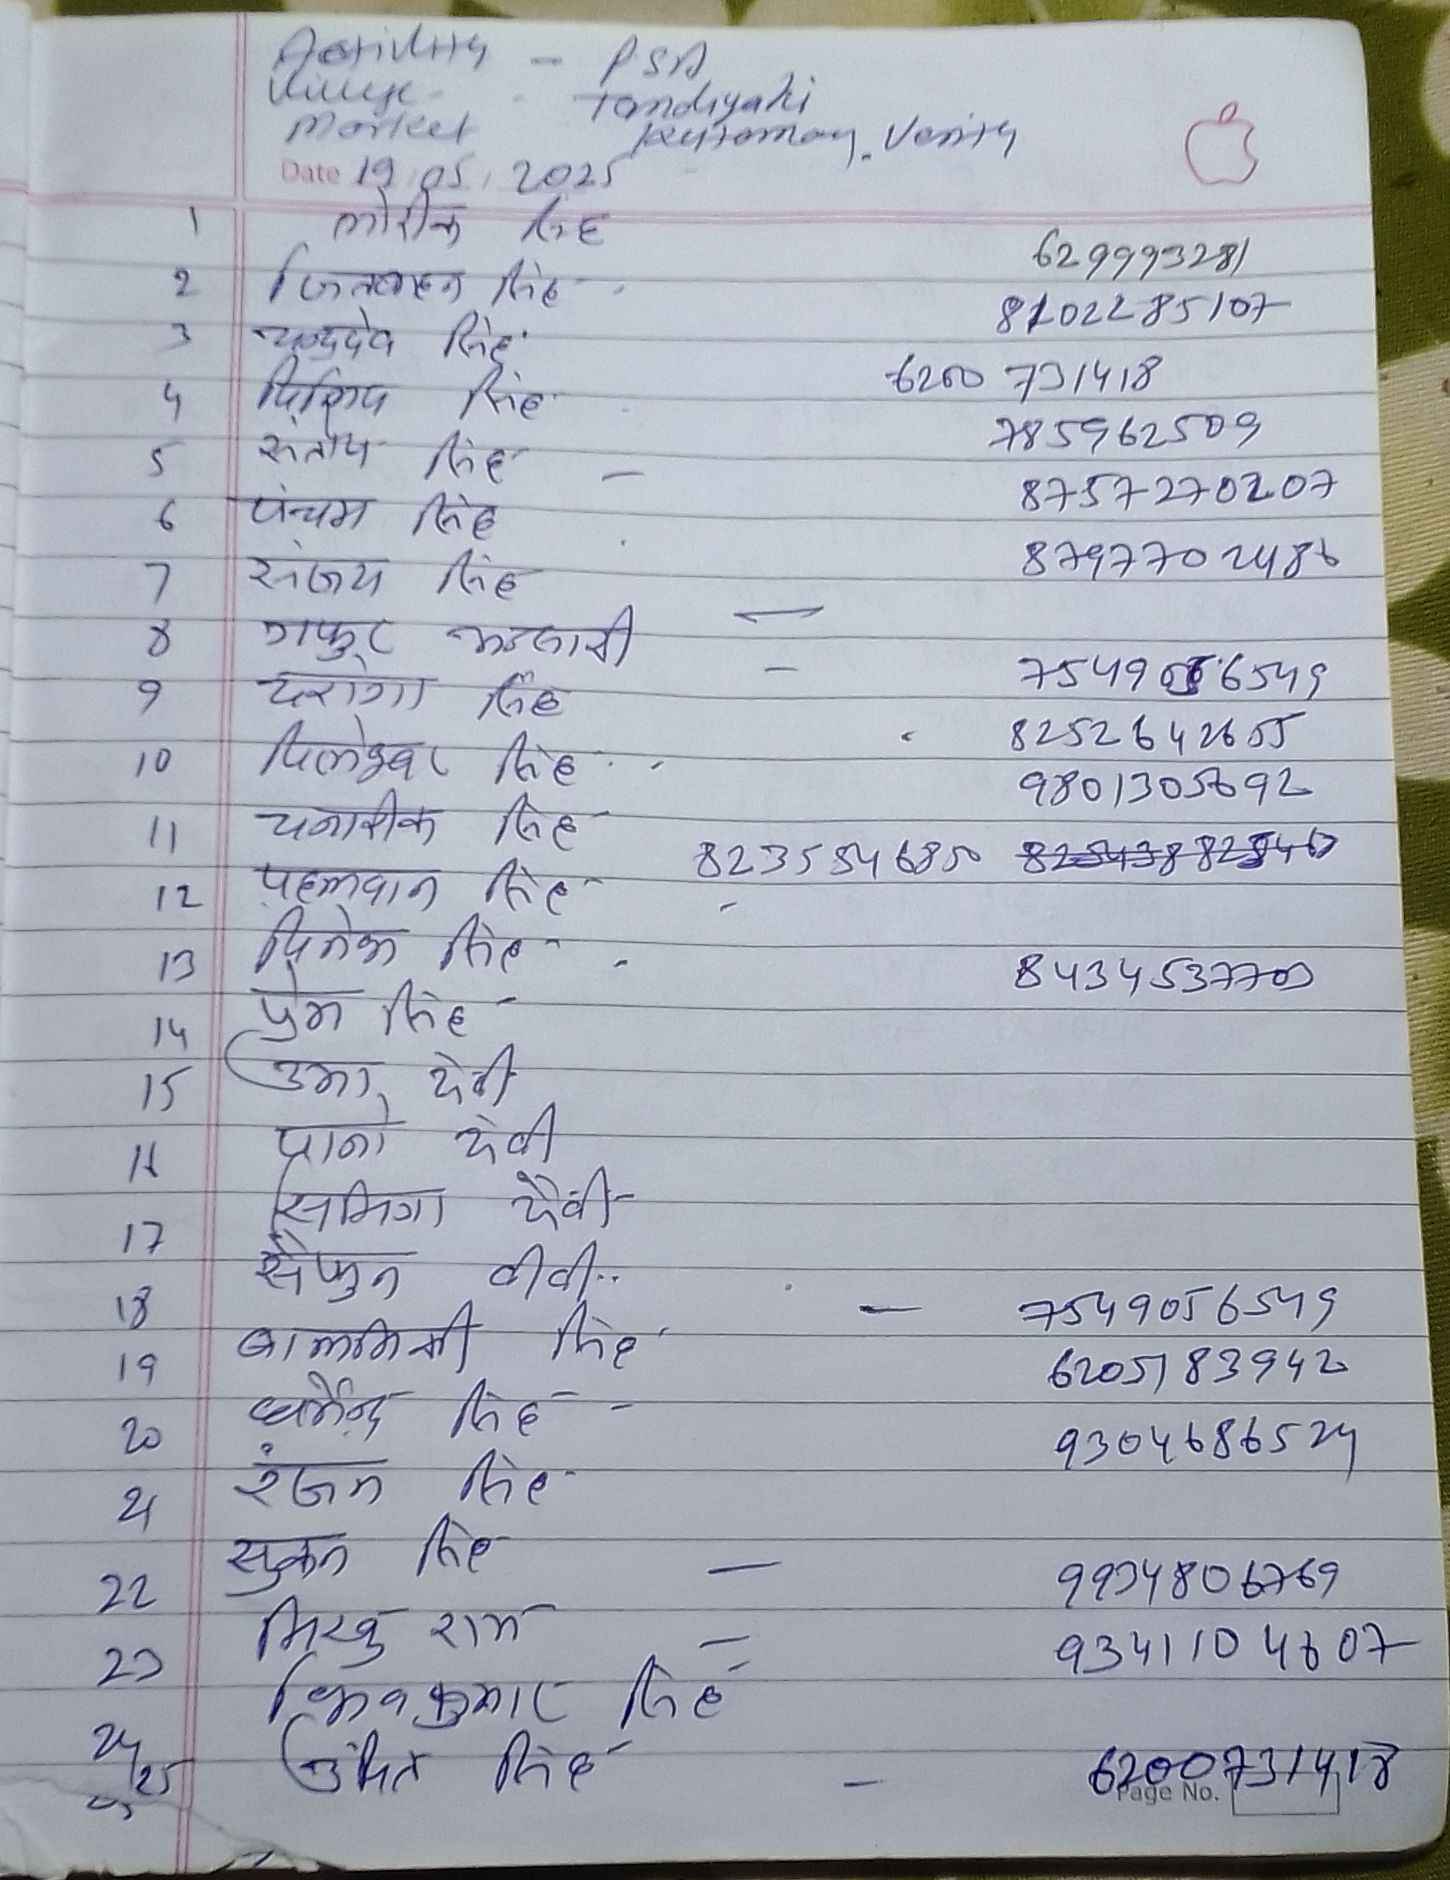 Activity - PSA
Village - Tandiyahi
Market
Date 19/05/2025
1 सिंह 629993281
2 सिंह 8102285107
3 चन्द्रदेव सिंह 6200731418
4 दिलिप सिंह 785962509
5 संतोष सिंह - 8757270207
6 पंचम सिंह 8797702486
7 संजय सिंह -
8 गफुर अन्सारी - 7549056549
9 दरोगा सिंह 8252642655
10 दिलेश्वर सिंह 9801305692
11 सिंह 8235546850
12 पहलवान सिंह -
13 दिनेश सिंह - 8434537703
14 प्रेम सिंह
15 उमा देवी
16 पानो देवी
देवी
17 सैफुन बीबी
18 सिंह - 7549056549
19 धर्मेन्द्र सिंह - 6205183942
20 रंजन सिंह 9304686524
21 सुकन सिंह
22 राम - 9934806769
23 शिवकुमार सिंह = 9341104607
24/25 सिंह - 6200731418
Page No.